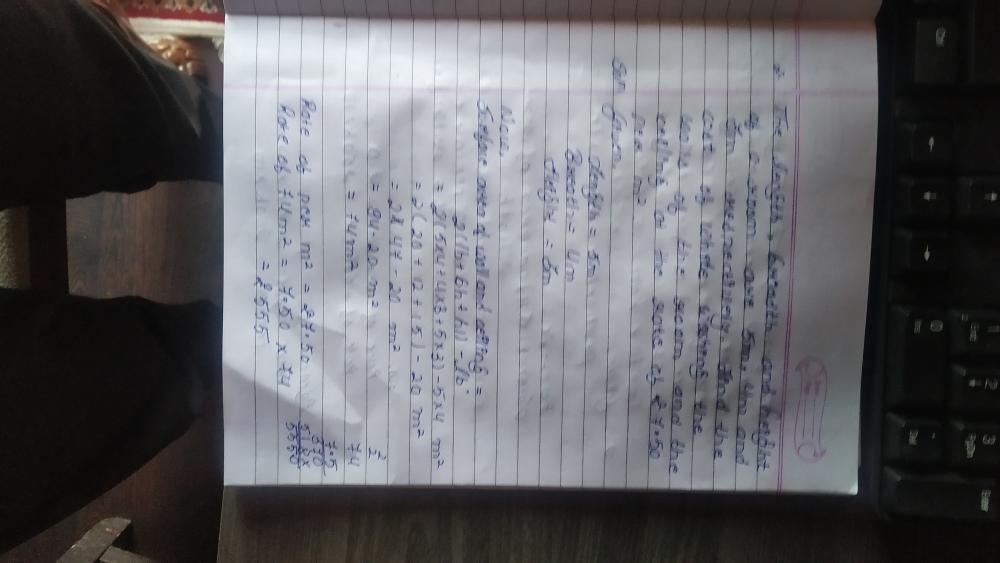 2. The length, breadth and height
of a room are 5m, 4m and
3m respectively. Find the
cost of white washing the
walls of the room and the
ceiling at the rate of ₹ 7.50
per m²
Soln Given,
Length = 5m
Breadth = 4m
Height = 3m
Now,
Surface area of wall and ceiling =
2(lb + bh + hl) - lb.
= 2(5x4 + 4x3 + 5x3) - 5x4 m²
= 2(20 + 12 + 15) - 20 m²
= 2 x 47 - 20 m²
= 94 - 20 m²
= 74 m²
Rate of per m² = ₹ 7.50
Rate of 74m² = 7.50 x 74
= ₹ 555
74
7.5
370
518x
5550